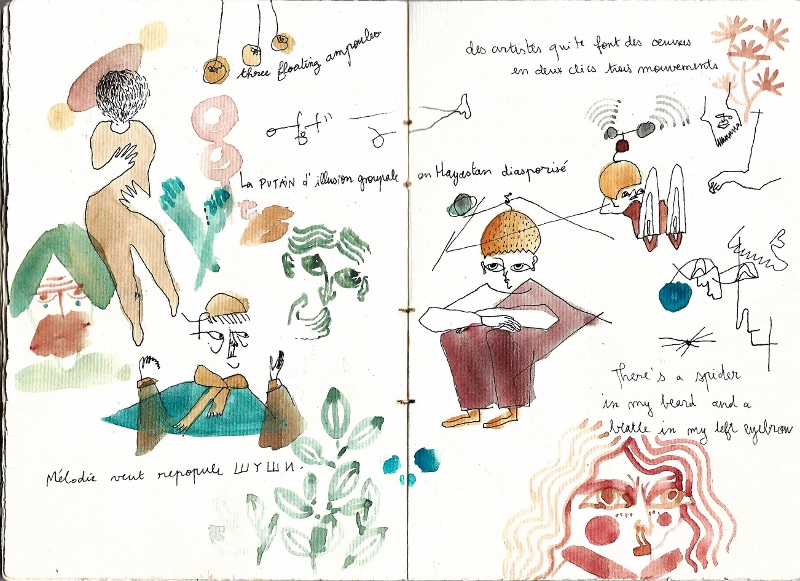 three floating ampoules
La PUTAIN d'illusion groupale
Mélodie veut repopule ШУШИ.
des artistes qui te font des œuvres
en deux clics trois mouvements
en Hayastan diasporisé
There's a spider
in my beard and a
blatte in my left eyebrow